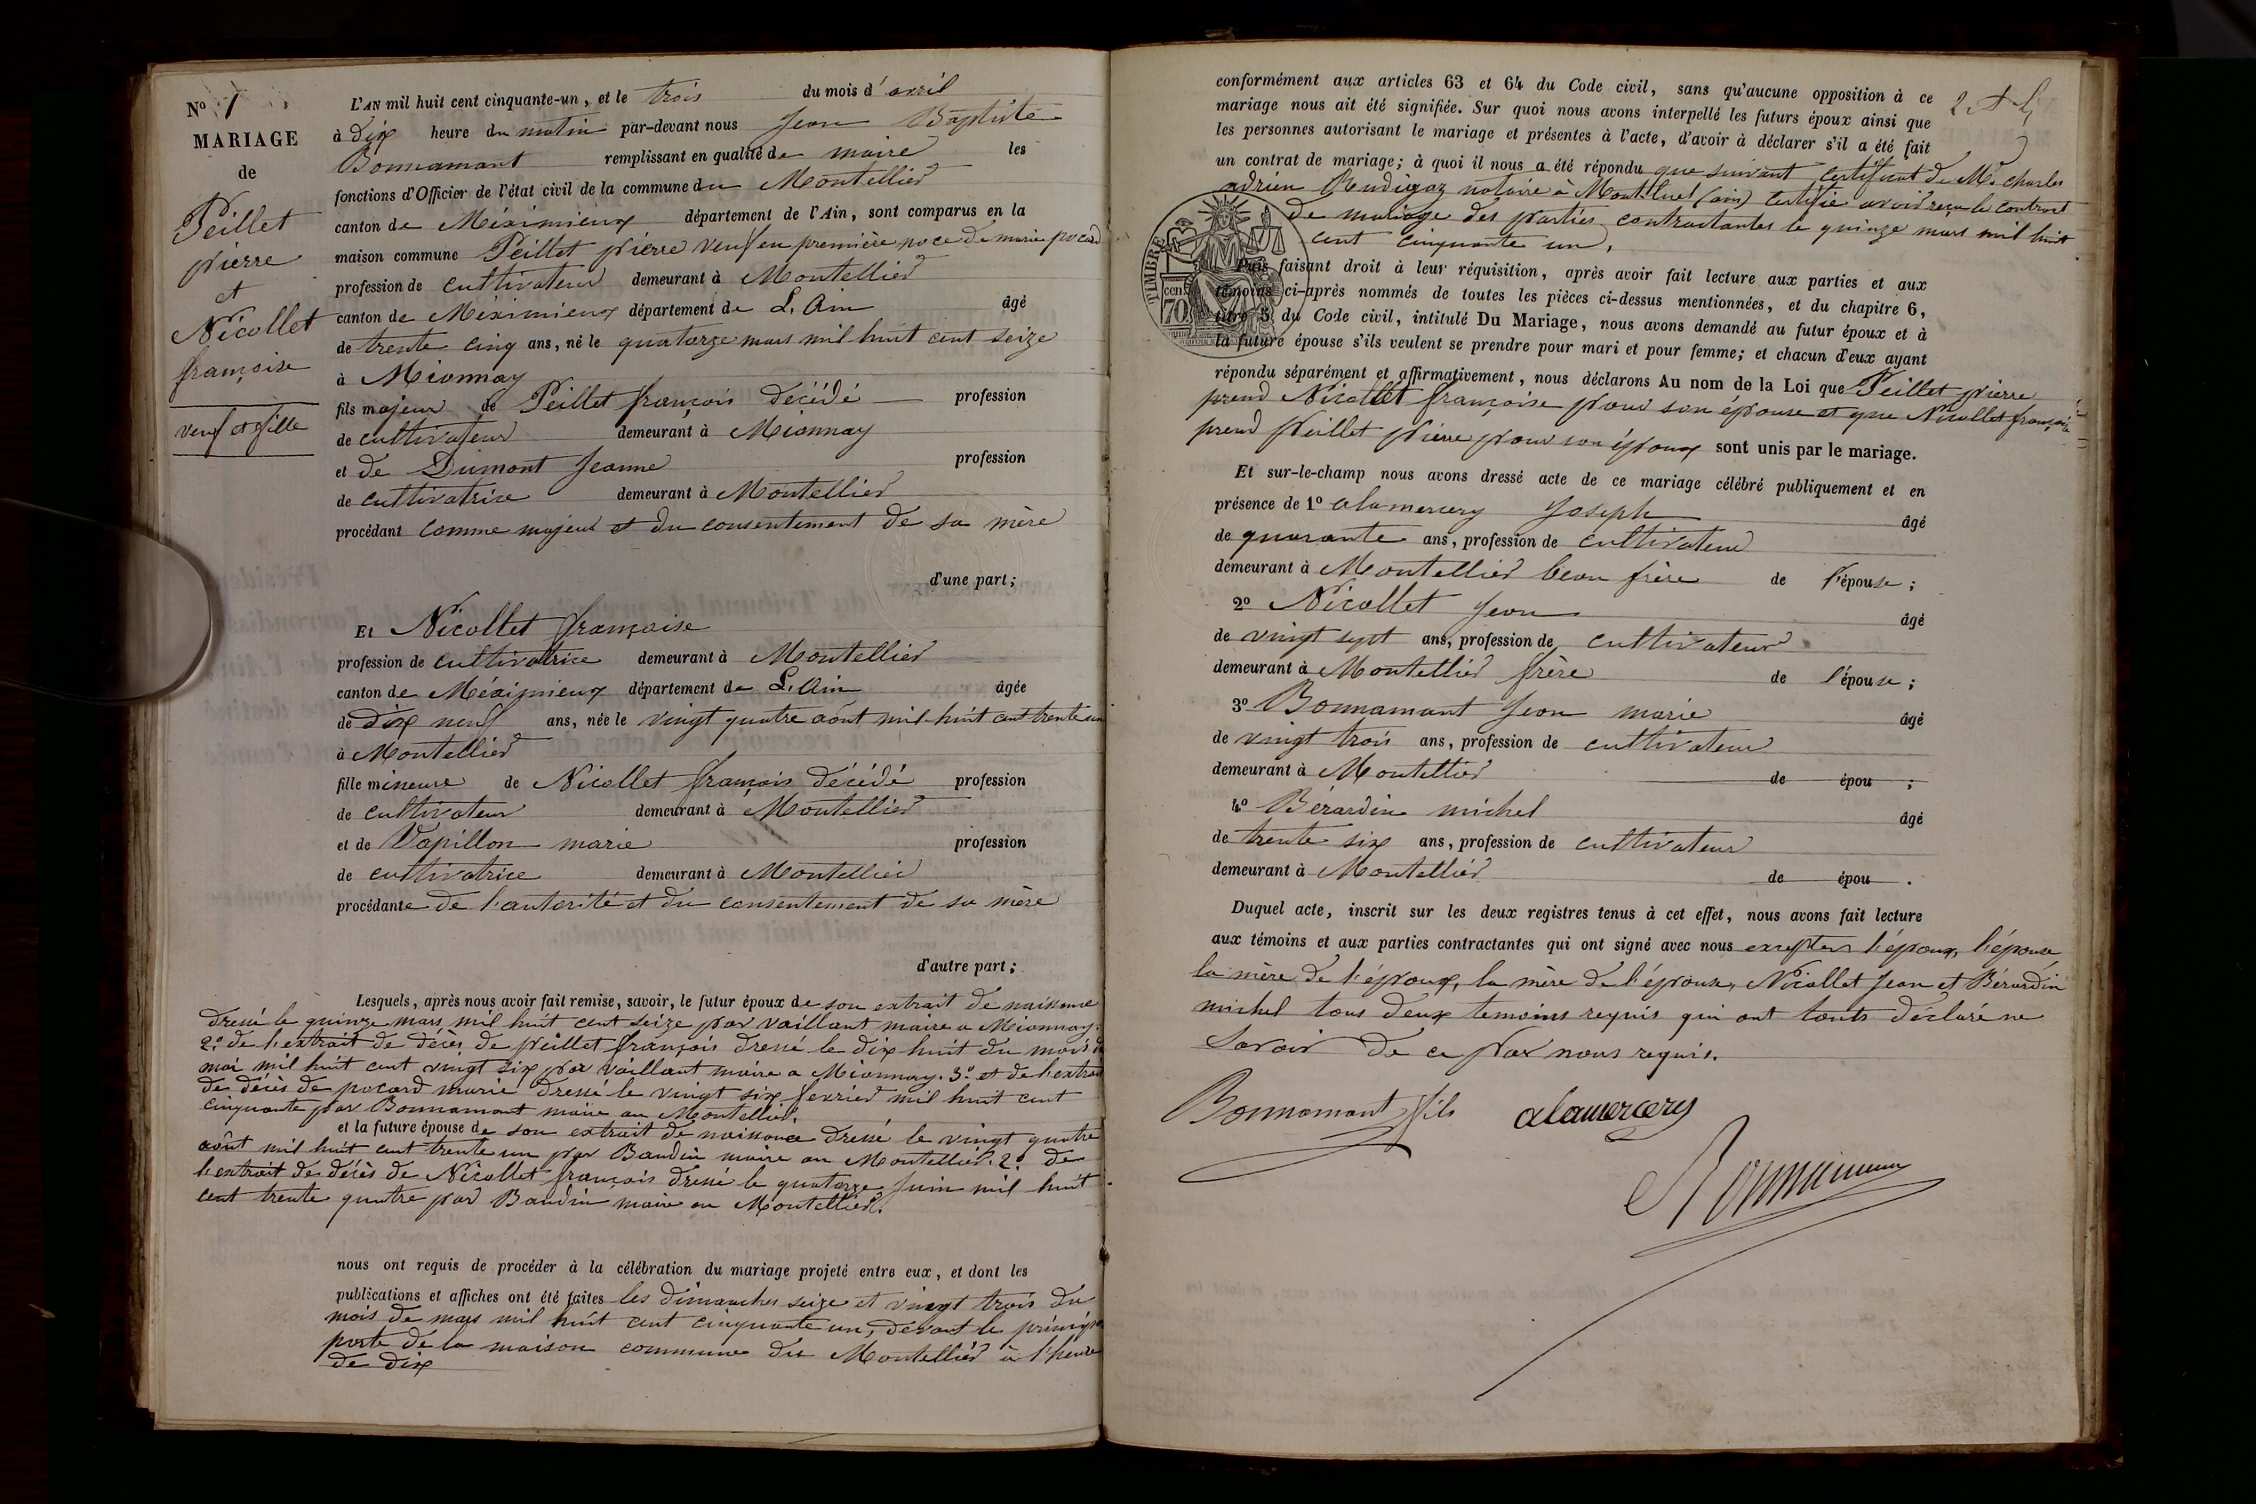 N° 1
MARIAGE
de
Peillet
pierre
et
Nicollet
françoise
veuf et fille
L'AN mil huit cent cinquante-un, et le trois du mois d'avril
à dix heure du matin par-devant nous Jean Baptiste
Bonnamant remplissant en qualité de maire les
fonctions d'Officier de l'état civil de la commune du Montellier
canton de Méximieux département de l'Ain, sont comparus en la
maison commune Peillet pierre veuf en première noce de marie pocard
profession de cultivateur demeurant à Montellier
canton de Méximieux département de L'Ain âgé
de trente cinq ans, né le quatorze mars mil huit cent seize
à Mionnay
fils majeur de Peillet françois décédé profession
de cultivateur demeurant à Mionnay
et de Dumont Jeanne profession
de cultivatrice demeurant à Montellier
procédant comme majeur et du consentement de sa mère
d'une part;
Et Nicollet françoise
profession de cultivatrice demeurant à Montellier
canton de Méximieux département de L'Ain âgée
de dix neuf ans, née le vingt quatre août mil huit cent trente un
à Montellier
fille mineure de Nicollet françois décédé profession
de cultivateur demeurant à Montellier
et de Papillon marie profession
de cultivatrice demeurant à Montellier
procédante de l'autorité et du consentement de sa mère
d'autre part;
Lesquels, après nous avoir fait remise, savoir, le futur époux de son extrait de naissance
dressé le quinze mars mil huit cent seize par Vaillant maire a Mionnay.
2° de l'extrait de décès de peillet françois dressé le dix huit du mois de
mai mil huit cent vingt six par Vaillant maire a Mionnay. 3° et de l'extrait
de décès de pocard marie dressé le vingt six fevrier mil huit cent
cinquante par Bonnamant maire au Montellier.
et la future épouse de son extrait de naissance dressé le vingt quatre
août mil huit cent trente un par Baudin maire au Montellier. 2° de
l'extrait de décès de Nicollet françois dressé le quatorze juin mil huit
cent trente quatre par Baudin maire au Montellier.
nous ont requis de procéder à la célébration du mariage projeté entre eux, et dont les
publications et affiches ont été faites les dimanches seize et vingt trois du
mois de mars mil huit cent cinquante un, devant la principale
porte de la maison commune du Montellier à l'heure
de dix
conformément aux articles 63 et 64 du Code civil, sans qu'aucune opposition à ce
mariage nous ait été signifiée. Sur quoi nous avons interpellé les futurs époux ainsi que
les personnes autorisant le mariage et présentes à l'acte, d'avoir à déclarer s'il a été fait
un contrat de mariage; à quoi il nous a été répondu que suivant certificat de Me charles
adrien Rendigaz notaire à Montluel (ain) certifie avoir reçu le contrat
de mariage des parties contractantes le quinze mars mil huit
cent cinquante un.
TIMBRE
cent.
70
Puis faisant droit à leur réquisition, après avoir fait lecture aux parties et aux
témoins ci-après nommés de toutes les pièces ci-dessus mentionnées, et du chapitre 6,
titre 5 du Code civil, intitulé Du Mariage, nous avons demandé au futur époux et à
la future épouse s'ils veulent se prendre pour mari et pour femme; et chacun d'eux ayant
répondu séparément et affirmativement, nous déclarons Au nom de la Loi que Peillet pierre
prend Nicollet françoise pour son épouse et que Nicollet françoise
prend peillet pierre pour son époux sont unis par le mariage.
Et sur-le-champ nous avons dressé acte de ce mariage célébré publiquement et en
présence de 1° alamercery Joseph âgé
de quarante ans, profession de cultivateur
demeurant à Montellier beau frère de l'épouse;
2° Nicollet Jean âgé
de vingt sept ans, profession de cultivateur
demeurant à Montellier frère de l'épouse;
3° Bonnamant Jean marie âgé
de vingt trois ans, profession de cultivateur
demeurant à Montellier de épou ;
4° Bérardin michel âgé
de trente six ans, profession de cultivateur
demeurant à Montellier de épou .
Duquel acte, inscrit sur les deux registres tenus à cet effet, nous avons fait lecture
aux témoins et aux parties contractantes qui ont signé avec nous exceptés l'époux, l'épouse
la mère de l'époux, la mère de l'épouse, Nicollet Jean et Bérardin
michel tous deux temoins requis qui ont touts déclaré ne
savoir de ce par nous requis.
Bonnamant fils alamercery
Bonnamant